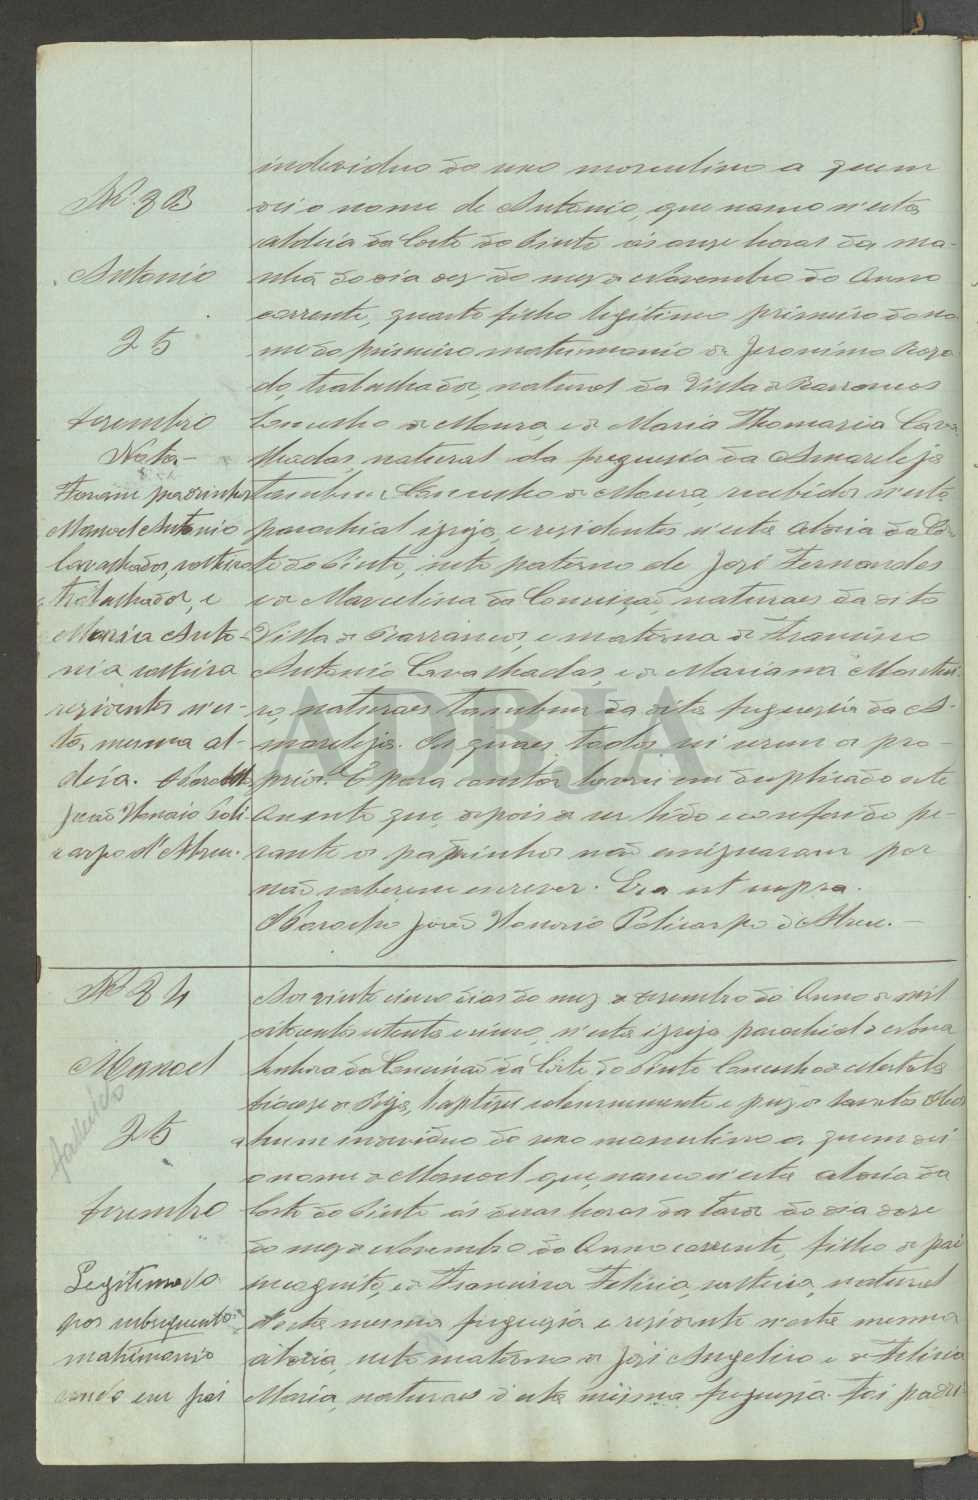 individuo do sexo masculino a quem
Nº 83
dei o nome de Antonio, que nasceu n'esta
aldeia da Corte do Pinto ás onze horas da ma-
Antonio
nhã do dia dez do mez de Novembro do Anno
corrente, quarto filho legitimo primeiro do no
25
me do primeiro matrimonio de Jeronimo Roza
do, trabalhador, natural da Villa de Barrancos
dezembro
Concelho de Moura, e de Maria Thomazia Cava
Nota-
lhadas, natural da freguesia da Amareleja
Foram padrinhos
tambem Concelho de Moura, recebidos n'esta
Manoel Antonio
parochial igreja, e residentes n'esta Aldeia da Cor
Cavalhadas, solteiro
te do Pinto, neto paterno de José Fernandes
trabalhador, e
e de Marcelina da Conceição naturaes da dita
Maria Anto-
Villa de Barrancos, e materno de Francisco
nia solteira
Antonio Cavalhadas, e de Mariana Montei
residentes n'es-
ro, naturaes tambem da dita freguezia da A-
ta mesma al-
mareleja. Os quaes todos sei serem os pro-
deia. O Parocho
prios. E para constar lavrei em duplicado este
João Honorio Poli
Assento que, depois de ser lido e conferido pe-
carpo d'Abreu.
rante os padrinhos não assignaram por
não saberem escrever. Era ut supra.
O Parocho João Honorio Policarpo d'Abreu.-
Nº 84
Aos vinte cinco dias do mez de dezembro do Anno de mil
oitocentos oitenta e cinco, n'esta igreja parochial de Nossa
Manoel
Senhora da Conceição da Corte do Pinto Concelho de Mertola
fallecido
diocese de Beja, baptizei solemnemente e puz os Santos Oleos
25
a hum individuo do sexo masculino a quem dei
o nome de Manoel que, nasceu n'esta aldeia da
dezembro
Corte do Pinto ás duas horas da tarde do dia doze
do mez de Novembro do Anno corrente, filho de pai
Legitimado
incognito, e de Francisca Felicia, solteira, natural
por subsequente
d'esta mesma freguezia e residente n'esta mesma
matrimonio
aldeia neto materno de José Angelino e de Felicia
sendo seu pai
Maria, naturaes d'esta mesma freguezia. Foi padri
ADBJA